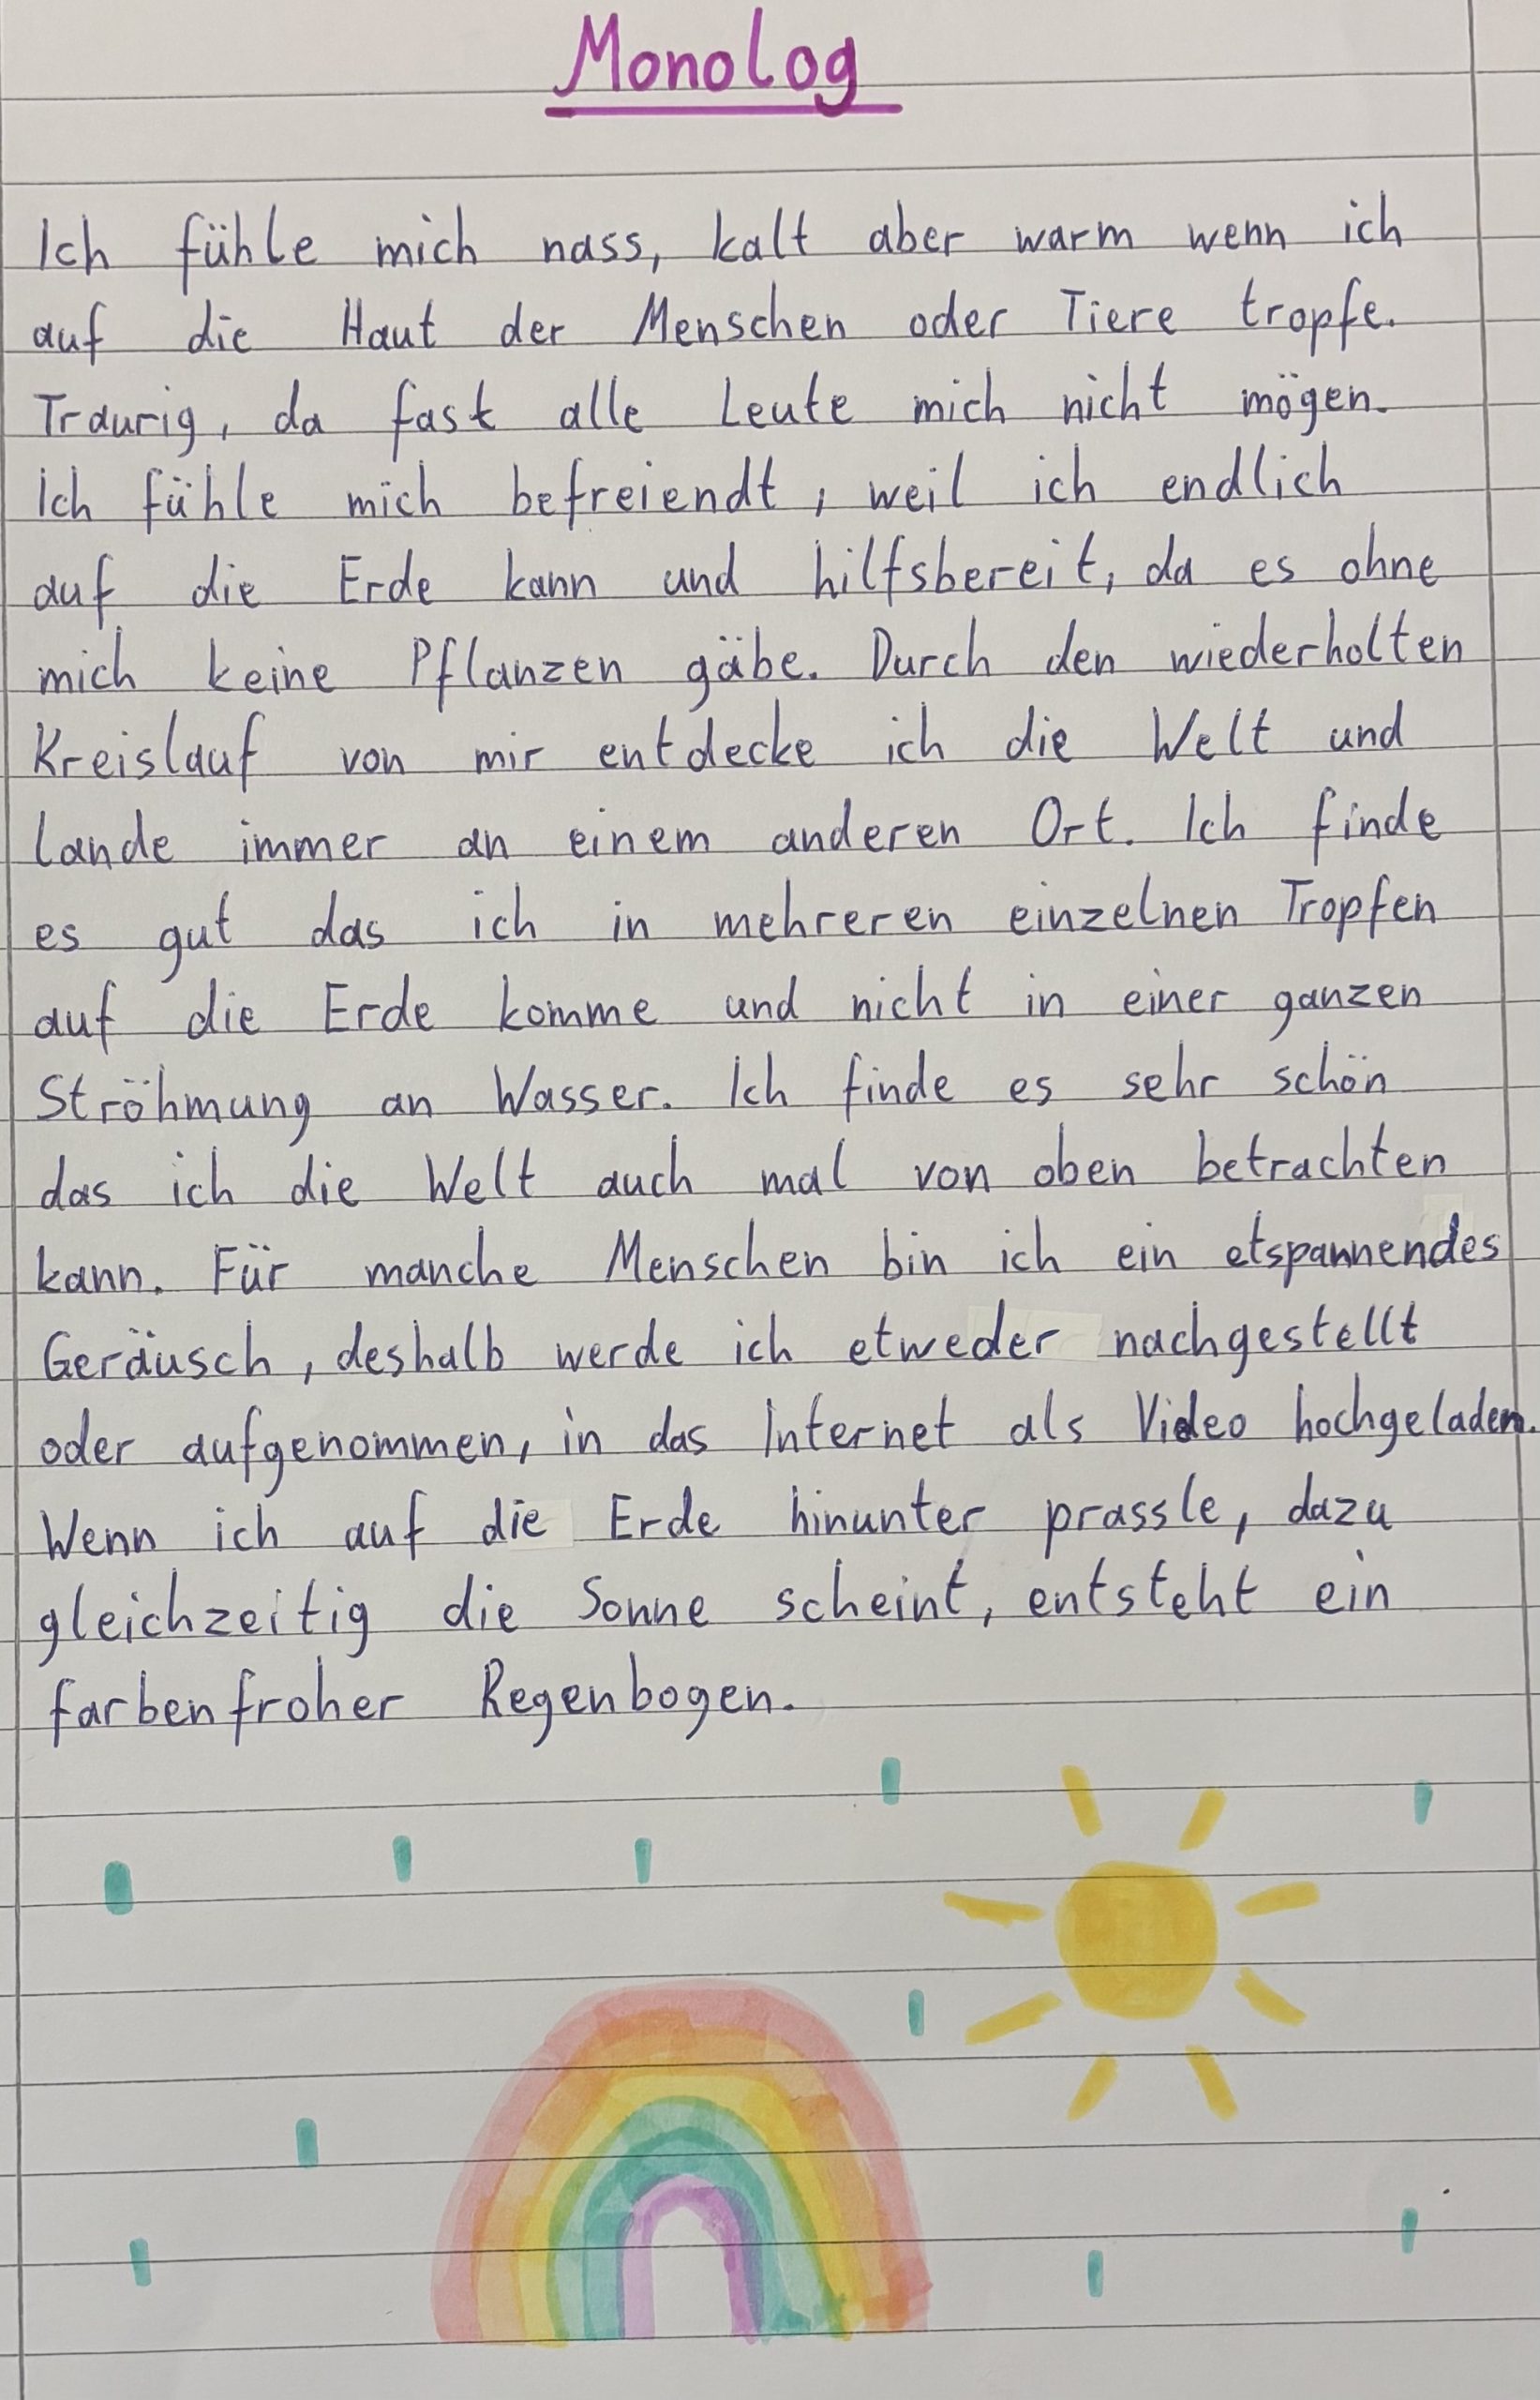 Monolog
Ich fühle mich nass, kalt aber warm wenn ich
auf die Haut der Menschen oder Tiere tropfe.
Traurig, da fast alle Leute mich nicht mögen.
Ich fühle mich befreiendt, weil ich endlich
auf die Erde kann und hilfsbereit, da es ohne
mich keine Pflanzen gäbe. Durch den wiederholten
Kreislauf von mir entdecke ich die Welt und
lande immer an einem anderen Ort. Ich finde
es gut das ich in mehreren einzelnen Tropfen
auf die Erde komme und nicht in einer ganzen
Ströhmung an Wasser. Ich finde es sehr schön
das ich die Welt auch mal von oben betrachten
kann. Für manche Menschen bin ich ein etspannendes
Geräusch, deshalb werde ich etweder nachgestellt
oder aufgenommen, in das Internet als Video hochgeladen.
Wenn ich auf die Erde hinunter prassle, dazu
gleichzeitig die Sonne scheint, entsteht ein
farbenfroher Regenbogen.